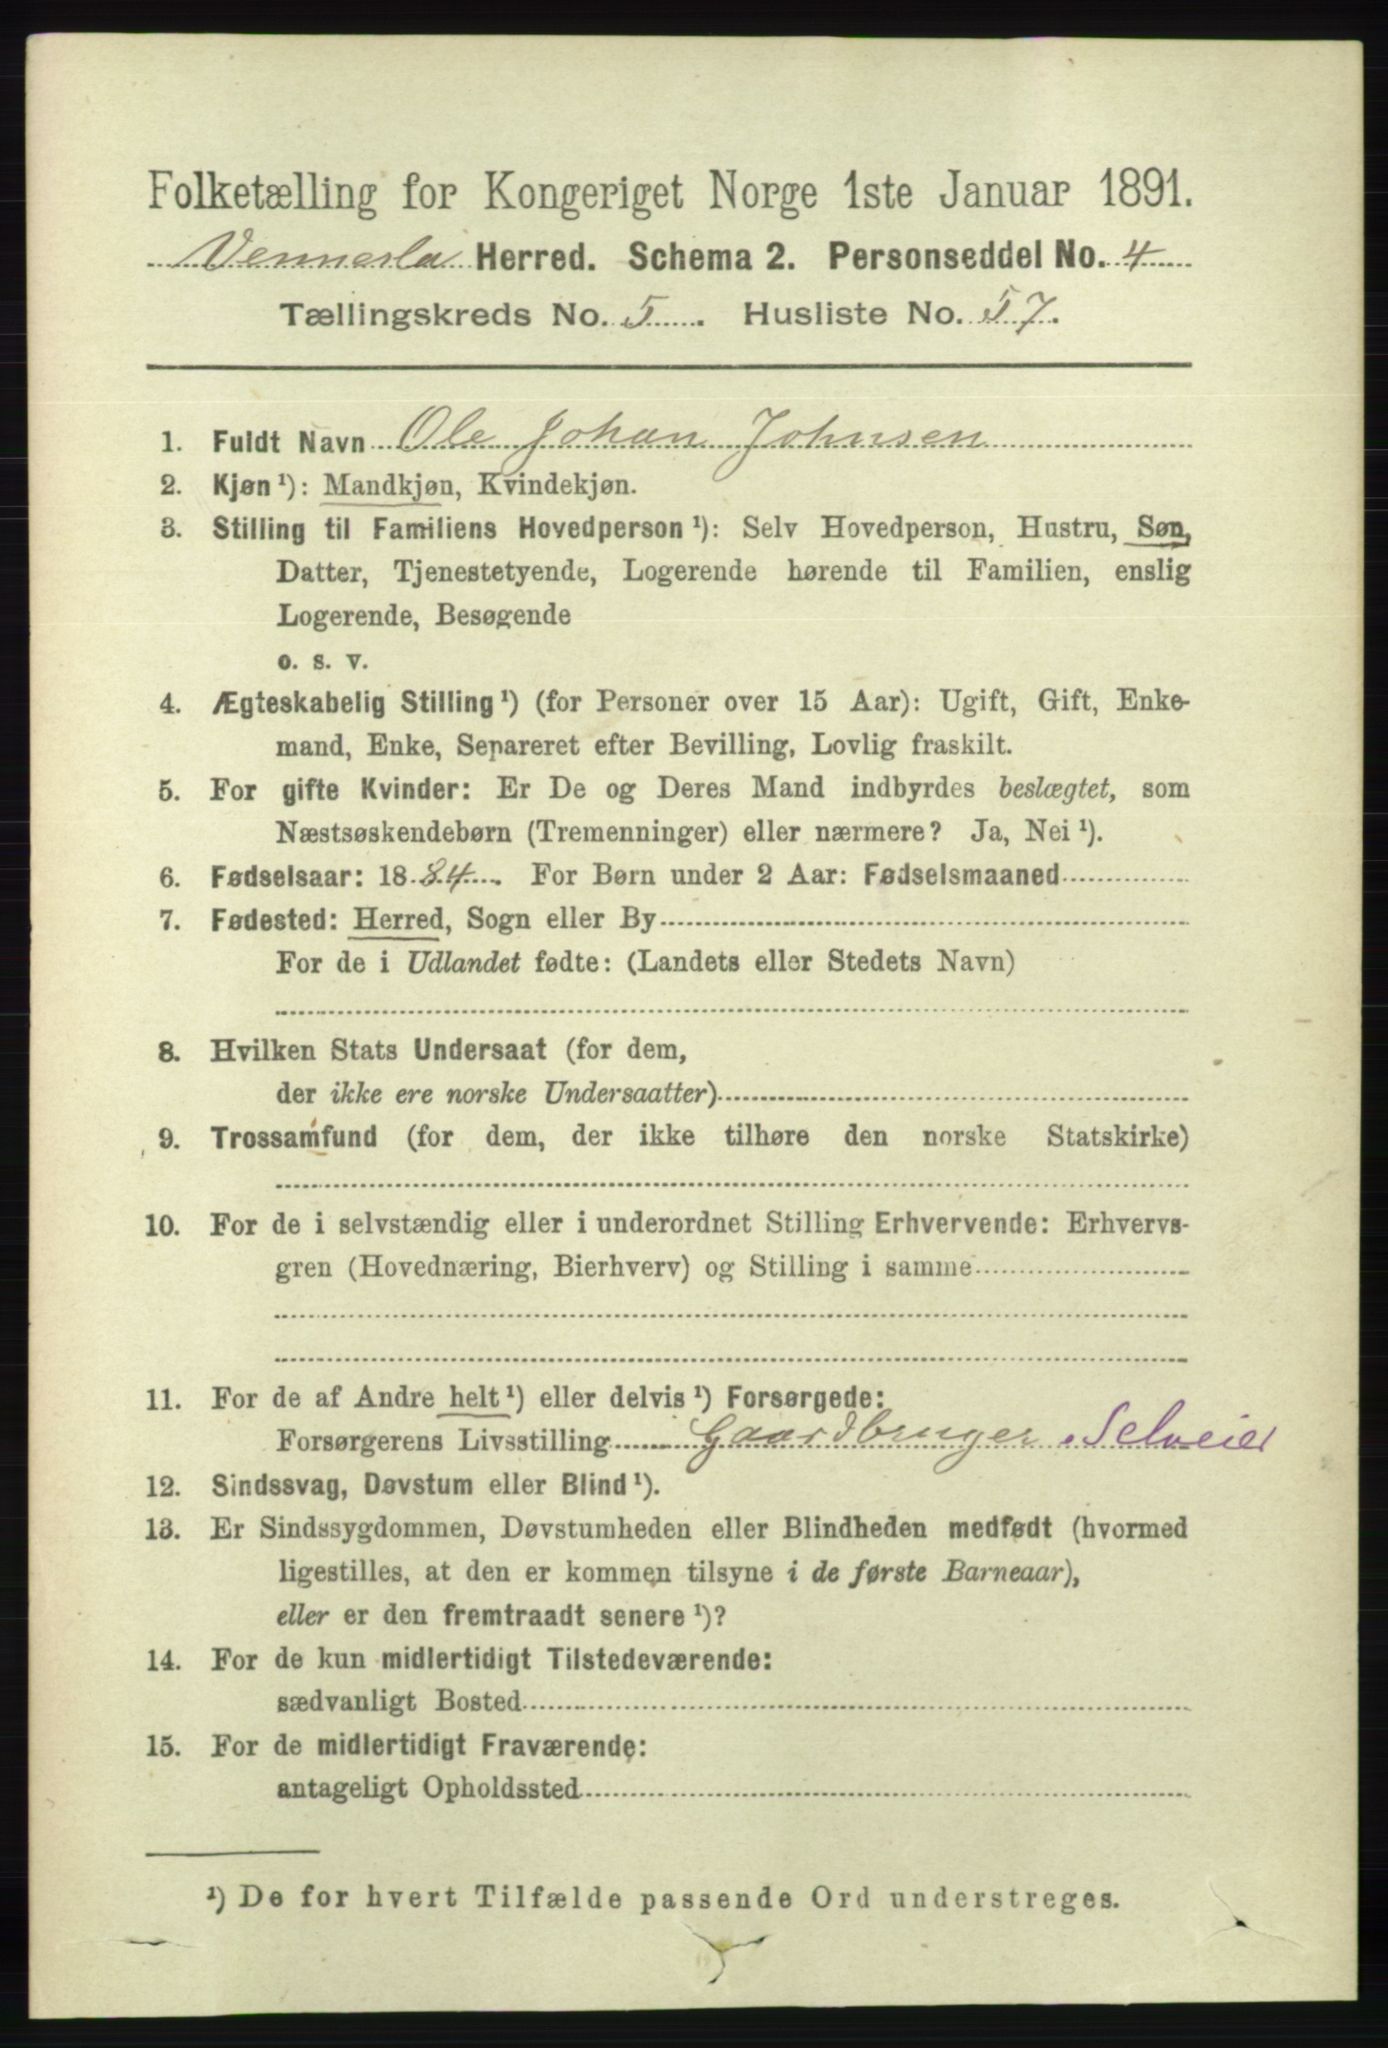 Folketælling for Kongeriget Norge 1ste Januar 1891.
Vennesla Herred. Schema 2. Personseddel No. 4
Tællingskreds No. 5. Husliste No. 57.
1. Fuldt Navn Ole Johan Johnsen
2. Kjøn ¹): Mandkjøn, Kvindekjøn.
3. Stilling til Familiens Hovedperson ¹): Selv Hovedperson, Hustru, Søn,
Datter, Tjenestetyende, Logerende hørende til Familien, enslig
Logerende, Besøgende
o. s. v.
4. Ægteskabelig Stilling ¹) (for Personer over 15 Aar): Ugift, Gift, Enke-
mand, Enke, Separeret efter Bevilling, Lovlig fraskilt.
5. For gifte Kvinder: Er De og Deres Mand indbyrdes beslægtet, som
Næstsøskendebørn (Tremenninger) eller nærmere? Ja, Nei ¹).
6. Fødselsaar: 1884. For Børn under 2 Aar: Fødselsmaaned
7. Fødested: Herred, Sogn eller By
For de i Udlandet fødte: (Landets eller Stedets Navn)
8. Hvilken Stats Undersaat (for dem,
der ikke ere norske Undersaatter)
9. Trossamfund (for dem, der ikke tilhøre den norske Statskirke)
10. For de i selvstændig eller i underordnet Stilling Erhvervende: Erhvervs-
gren (Hovednæring, Bierhverv) og Stilling i samme
11. For de af Andre helt ¹) eller delvis ¹) Forsørgede:
Forsørgerens Livsstilling Gaardbruger Selveier
12. Sindssvag, Døvstum eller Blind ¹).
13. Er Sindssygdommen, Døvstumheden eller Blindheden medfødt (hvormed
ligestilles, at den er kommen tilsyne i de første Barneaar),
eller er den fremtraadt senere ¹)?
14. For de kun midlertidigt Tilstedeværende:
sædvanligt Bosted
15. For de midlertidigt Fraværende:
antageligt Opholdssted
¹) De for hvert Tilfælde passende Ord understreges.